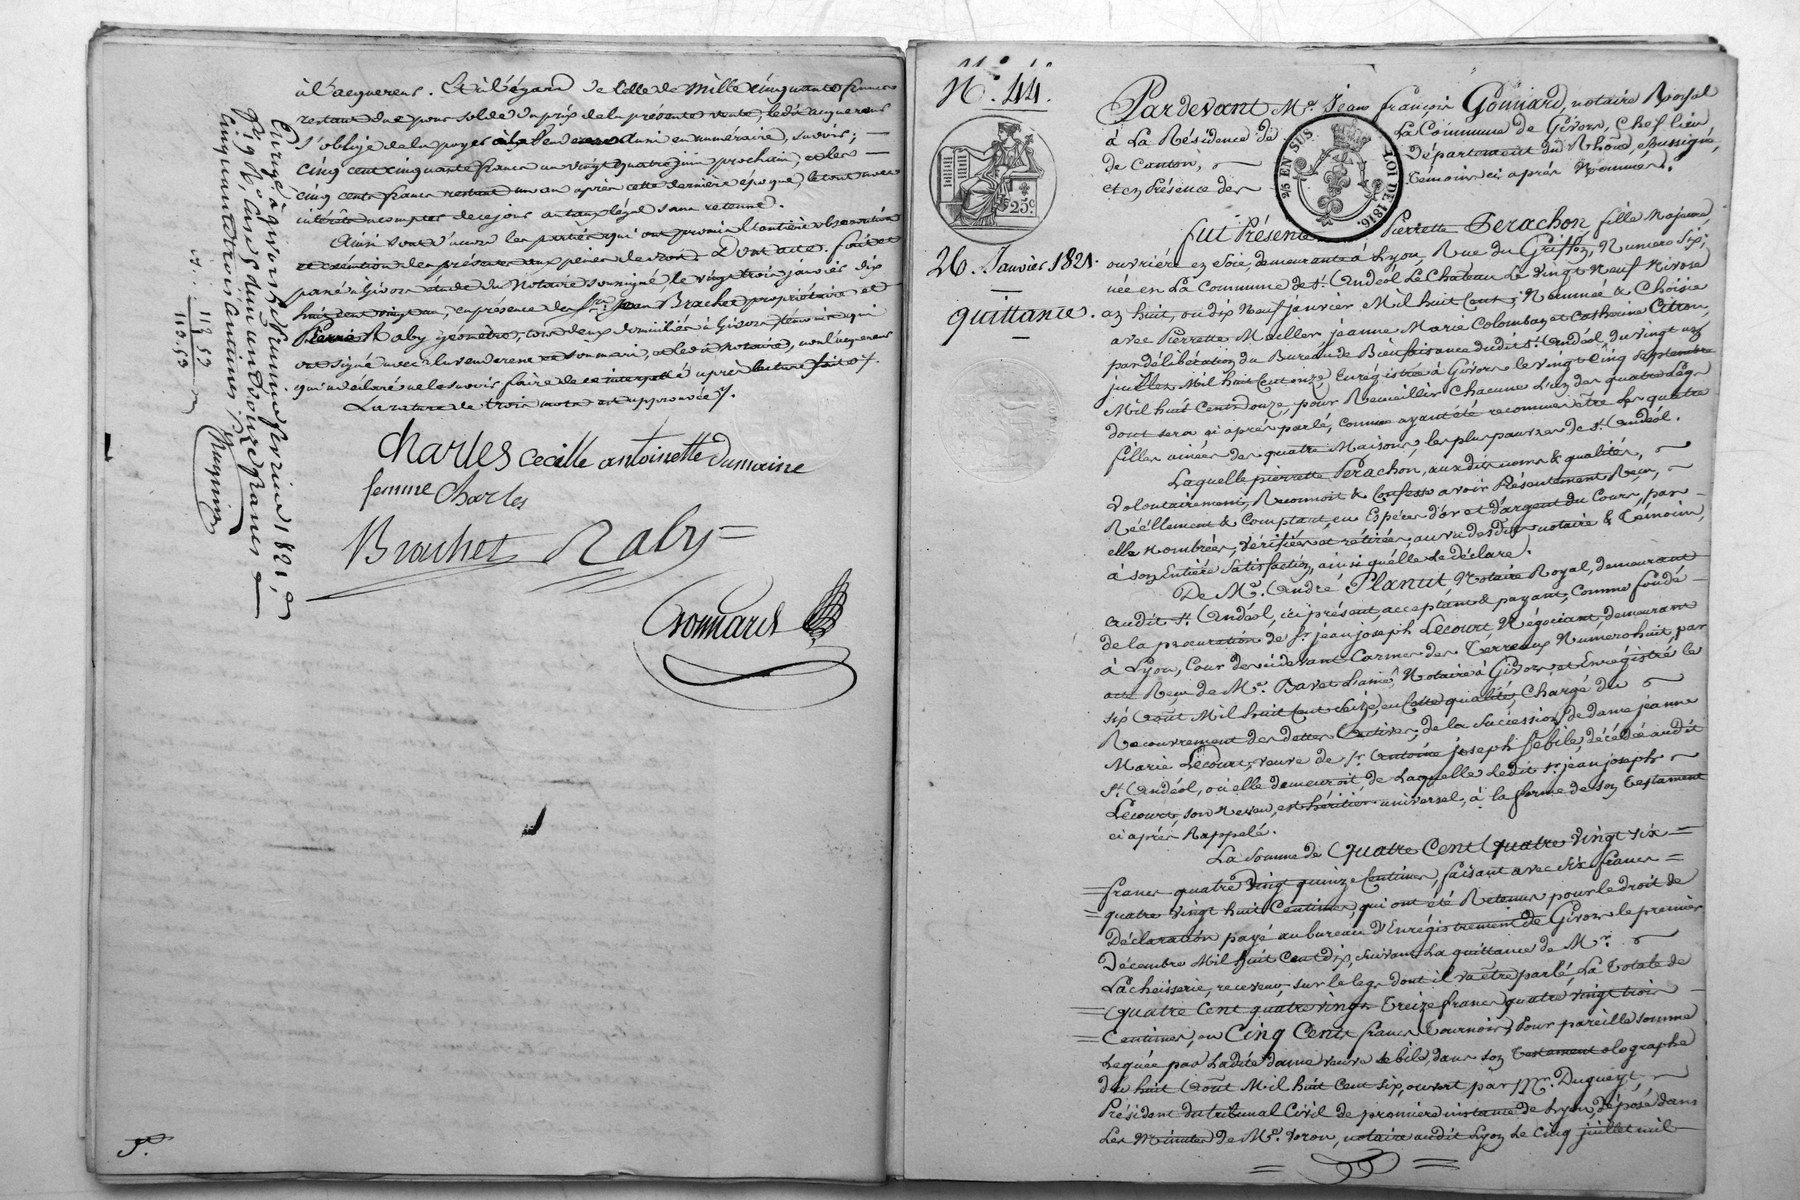 à l'acquereur. Et à l'égard de celle de mille cinquante francs
restant due pour solde du prix de la présente vente, ledit acquereur
s'oblige de la payer en numéraire, savoir; —
cinq cent cinquante francs au vingt quatre juin prochain, et les
cinq cents francs restant un an après cette dernière époque, le tout avec
intérêts à compter de ce jour au taux légal sans retenue.
Ainsi sont d'accord les parties qui ont promis l'entière observation
et exécution des présentes aux peines de droit. Dont acte. fait et
passé à Givors étude du Notaire soussigné, le vingt trois janvier dix
huit cent vingt un, en présence de Sieurs Jean Brachet propriétaire et
Pierre Raby géomètre, tous deux domiciliés à Givors témoins qui
ont signé avec la venderesse et son mari, et ledit Notaire, non l'acquereur
qui a déclaré ne le savoir faire de ce interpellé après lecture faite ./.
La rature de trois mots est approuvée ./.
Charles Cecille antoinette Dumaine
femme Charles
Brachet Raby
Gonnard
Enregistré à givors le premier février 1821,
cinquante trois centimes
112 53
P.
N.° 44.
25c
26. Janvier 1821.
quittance.
2/5 EN SUS LOI DE 1816.
Pardevant M.e Jean françois Gonnard, notaire Royal
à La Résidence de La Commune de Givors, Chef lieu
de Canton, Département du Rhône, soussigné,
et en Présence des Témoins ci après Nommés.
fut Présente Pierrette Perachon, fille Majeure,
ouvrière en Soie, demeurante à Lyon, Rue du Griffon, Numéro Six;
née en La Commune de St. Andéol Le Chateau Le vingt Neuf Nivose
an huit, ou dix Neuf janvier Mil huit Cent; Nommée & Choisie
avec Pierrette Mailler, jeanne Marie Colomban et Catherine Citron,
par délibération du Bureau de Bienfaisance dudit St. Andéol, du vingt un
juillet Mil huit Cent onze, Enrégistré à Givors le vingt Cinq Septembre
Mil huit Cent Douze, pour Recueillir Chacune L'un des quatre Legs
dont sera ci après parlé, comme ayant été reconnues être Les quatre
filles ainées des quatre Maisons les plus pauvres de St. Andéol.
Laquelle pierrette Perachon, aux dits noms & qualités,
volontairement, Reconnoit & Confesse avoir Présentement Reçu,
Réellement & Comptant, en Espèces d'or et d'argent du Cours, par
elle nombrées, vérifiées et retirées, au vu desdits notaire & Témoins,
à son Entière Satisfaction, ainsi qu'elle le déclare.
De M.e André Planut, Notaire Royal, demeurant
audit St. Andéol, ici présent, acceptant & payant, Comme fondé
de la procuration de Sr. jean joseph Lecourt, Négociant, demeurant
à Lyon, Cour des cidevant Carmes des Terreaux Numéro huit, par
acte Reçu de M.e Bavet L'ainé, Notaire à Givors et Enrégistré le
six Août Mil huit Cent Seize, en Cette qualité, Chargé du
Recouvrement des dettes actives, de la Succession de dame jeanne
Marie Lecourt, veuve de Sr. Antoine joseph Sebile, décédée audit
St. Andéol, où elle demeuroit, de Laquelle Ledit Sr. jean joseph
Lecourt, son Neveu, est héritier universel, à la forme de son Testament
ci après Rappelé.
La Somme de Quatre Cent Quatre vingt six
francs quatre vingt quinze Centimes, faisant avec Six francs
quatre vingt huit Centimes, qui ont été Retenus pour le droit de
Déclaration payé au bureau d'Enrégistrement de Givors le premier
Décembre Mil huit Cent dix, suivant La quittance de Mr.
Lacheisserie, receveur, sur le legs dont il va être parlé, La Totale de
Quatre Cent quatre vingt Treize francs quatre vingt trois
Centimes, ou Cinq Cents francs Tournois) Pour pareille somme
Leguée par Ladite dame veuve Sebile, dans son Testament olographe
du huit Août Mil huit Cent six, ouvert par Mr. Dugueyt,
Président du tribunal Civil de première instance de Lyon, déposé dans
Les Minutes de M.e Voron, notaire audit Lyon Le Cinq juillet mil